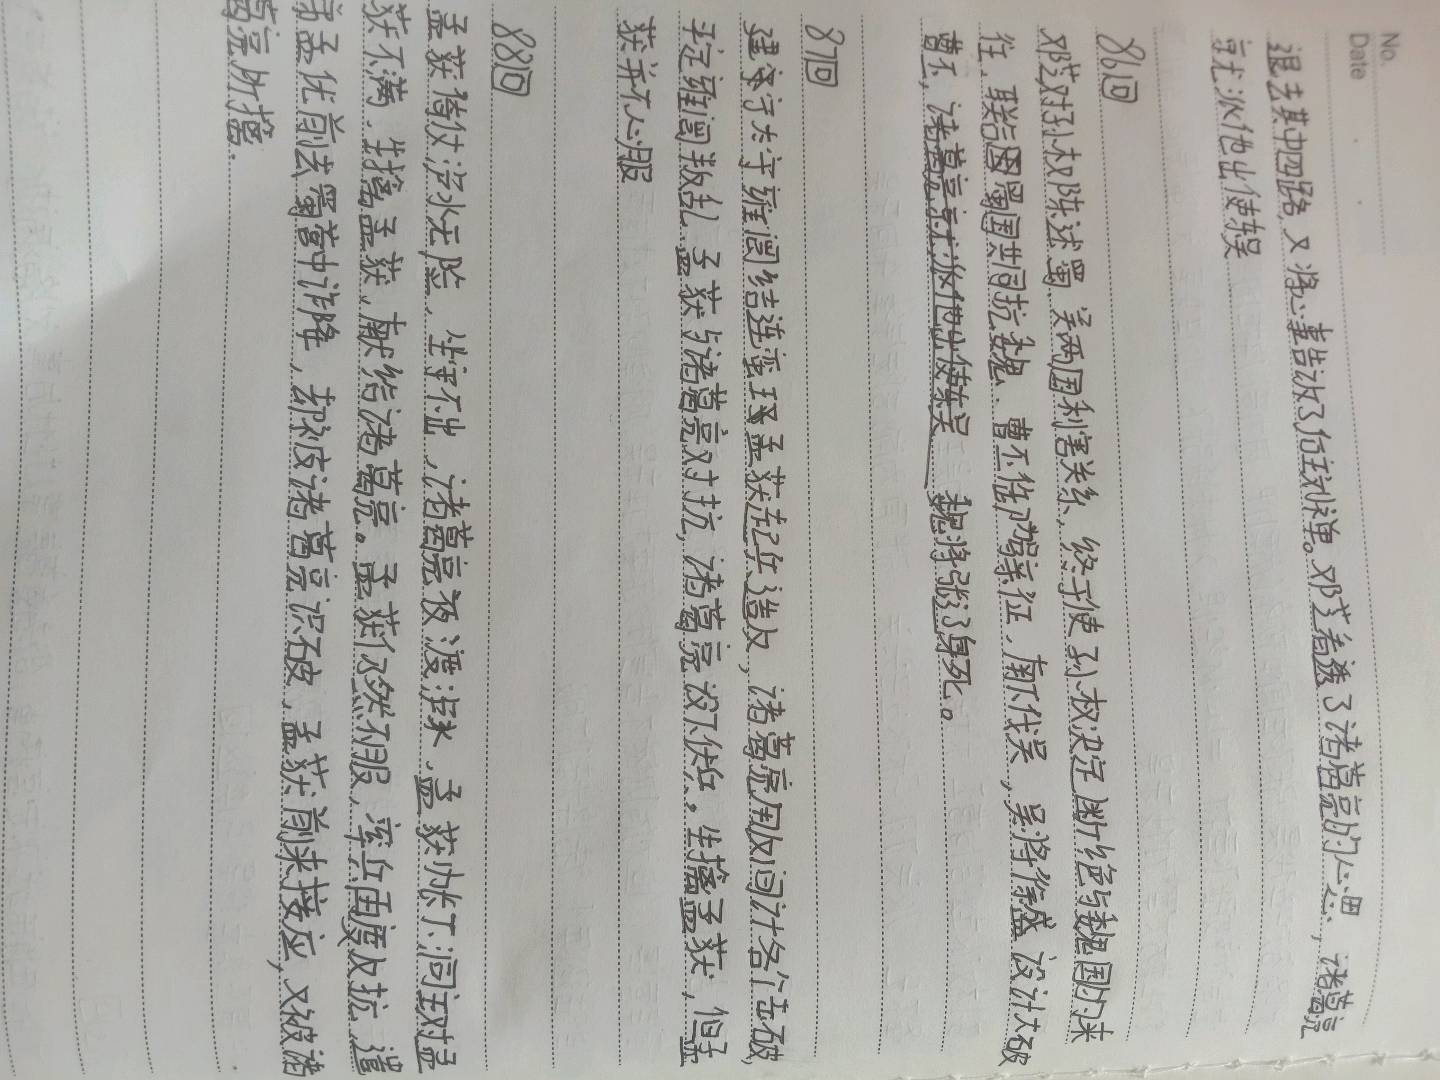 No.
Date
退去其中四路,又将心事告诉了后主刘禅。邓芝看透了诸葛亮的心思,诸葛亮
就派他出使东吴
86回
邓芝对孙权陈述蜀、吴两国利害关系,终于使孙权决定断绝与魏国的来
往,联合蜀国共同抗魏、曹丕御驾亲征,南下伐吴,吴将徐盛设计大破
曹丕,诸葛亮就派他出使东吴 魏将张辽身死。
87回
建宁太守雍闿结连蛮王孟获起兵造反,诸葛亮用反间计各个击破,
平定雍闿叛乱,孟获与诸葛亮对抗,诸葛亮设下伏兵。生擒孟获,但孟
获并不心服
88回
孟获倚仗泸水天险,坐守不出,诸葛亮夜渡泸水,孟获帐下洞主对孟
获不满,生擒孟获,献给诸葛亮。孟获仍然不服,率兵再度反抗,遣
弟孟优前去蜀营中诈降,却被诸葛亮识破,孟获前来接应,又被诸
葛亮所擒.